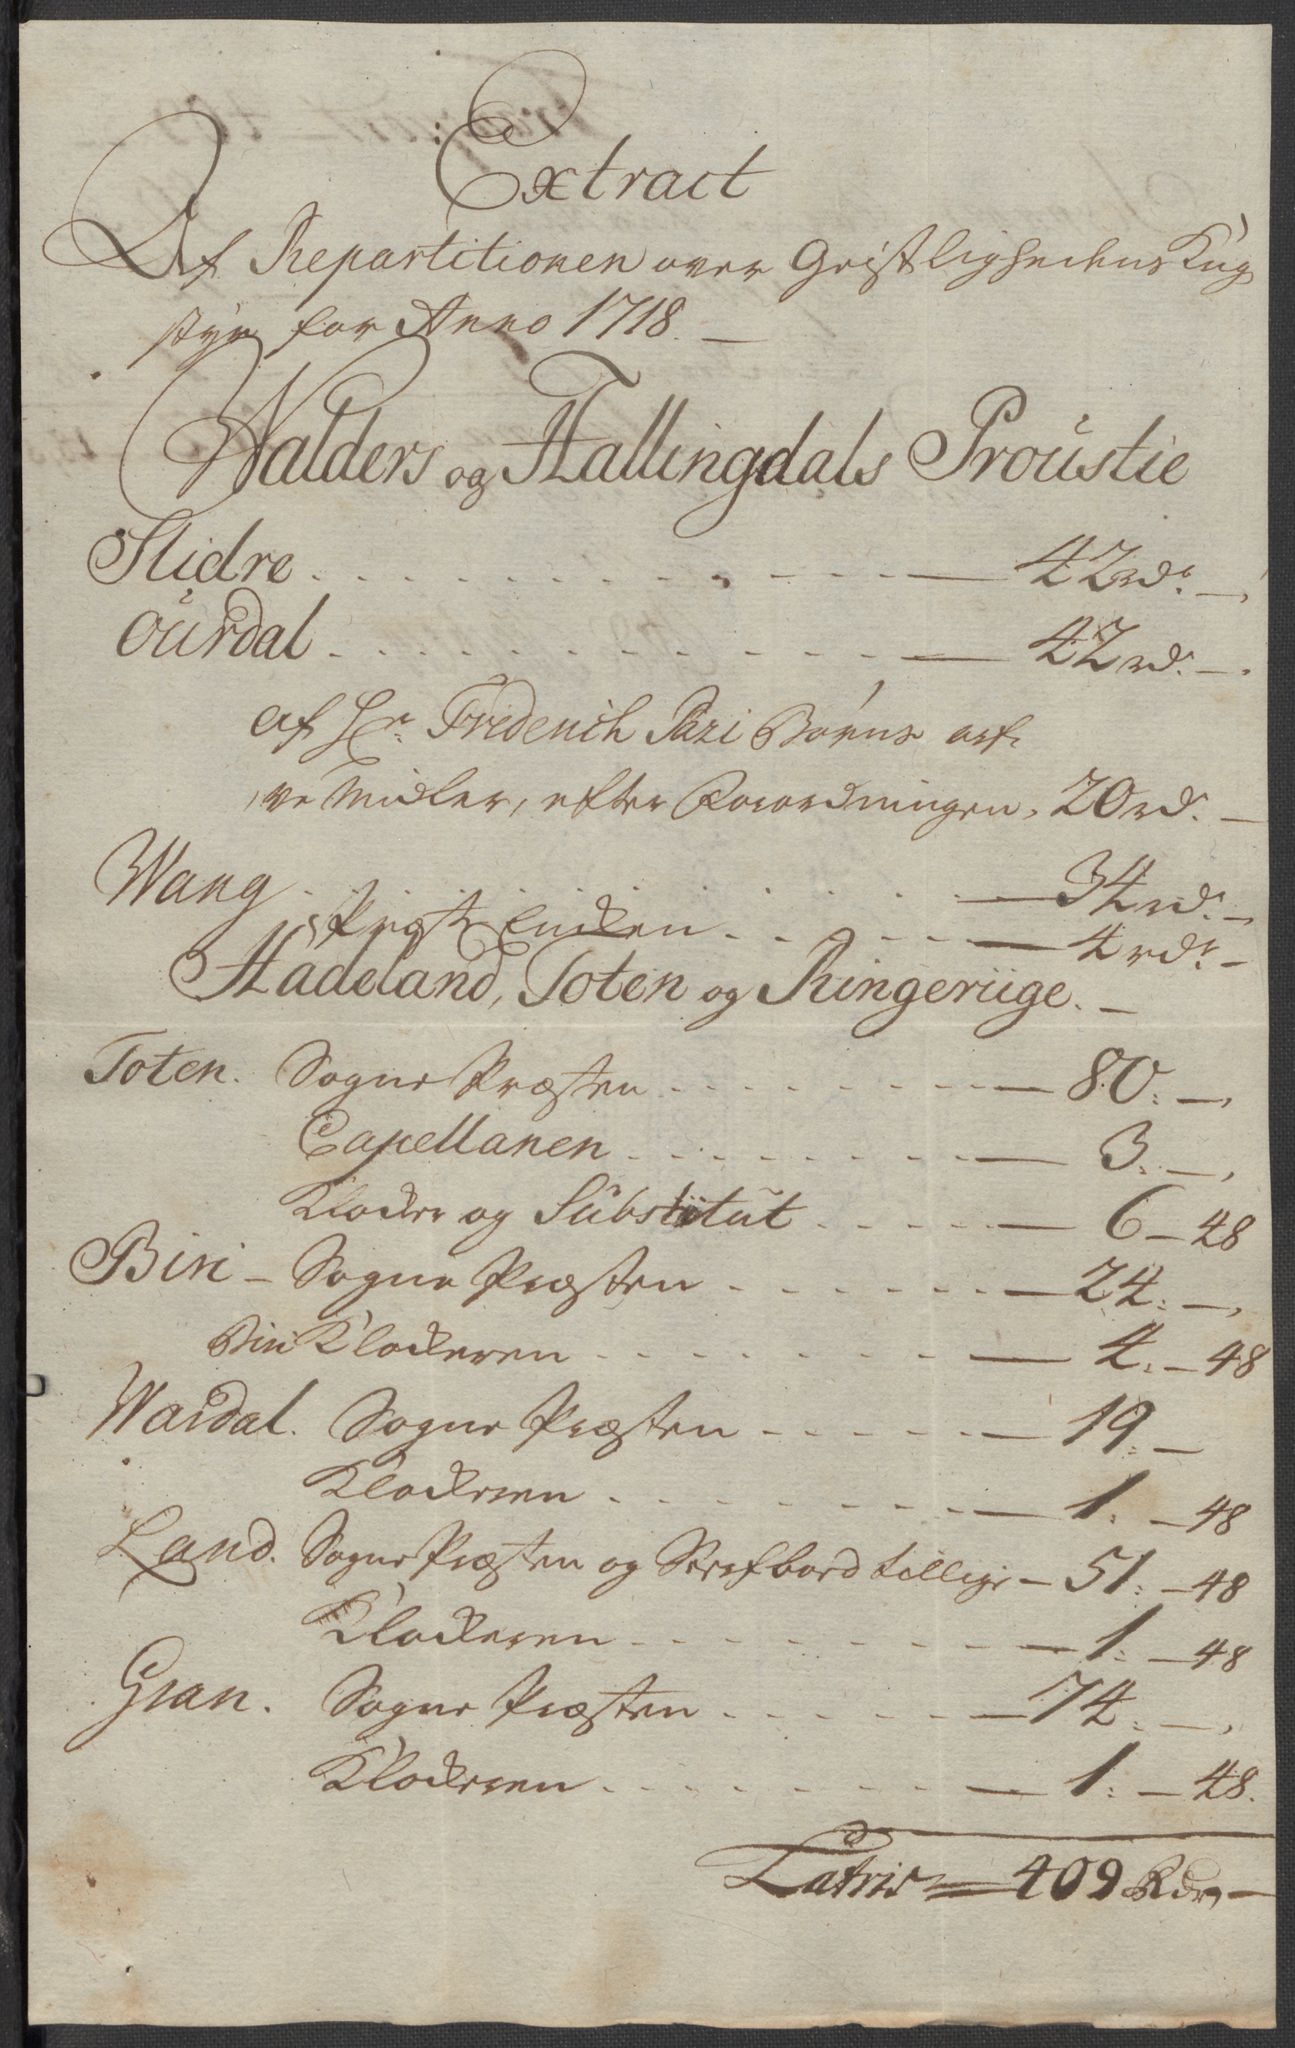 Extract
Af Repartitionen over Geistlighedens Krigs
styr for Anno 1718. —
Walders og Hallingdals Proustie
Slidre . . . . . . . . . . — 42 rd. —
Ourdal . . . . . . . . . . — 42 rd. —
af Hr. Friderich Pazi Børns arf-
ve Midler, efter Forordningen, 20 rd. —
Wang . . . . . . . . . . — 34 rd. —
Præst Enken . . . . . — 4 rd. —
Hadeland, Toten og Ringeriige. —
Toten. Sogne Præsten . . . . . . . — 80. —
Capellanen . . . . . . . — 3. —
Klocker og Substitut . . . . . — 6 — 48
Biri — Sogne Præsten . . . . . . . — 24. —
Biri Klockeren . . . . . . . — 4. — 48
Wardal. Sogne Præsten . . . . . — 19. —
Klockeren . . . . . . . — 1. — 48
Land. Sogne Præsten og tillige — 51. — 48
Klockeren . . . . . . . — 1. — 48
Gran. Sogne Præsten . . . . . — 74. —
Klockeren . . . . . . . — 1. — 48.
Lateris — 409 Rdr —